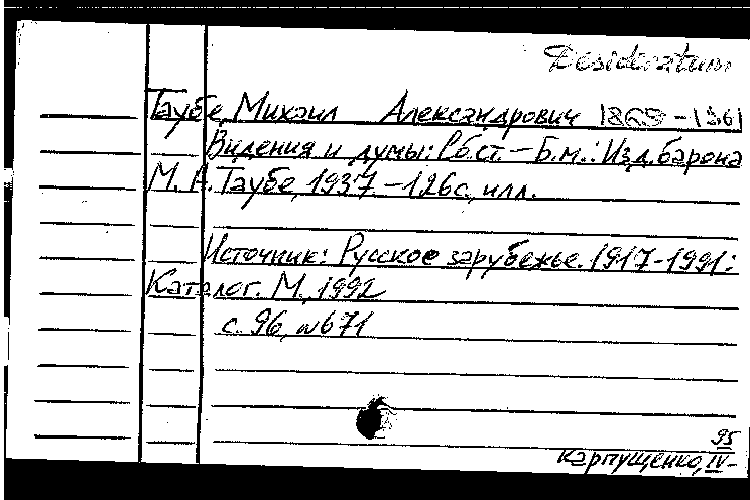 Desideratum
Таубе, Михаил Александрович 1869-1961
Видения и думы: Сб. ст. – Б.м.: Изд. барона
М. А. Таубе, 1937. – 126 с., илл.
Источник: Русское зарубежье. 1917-1991:
Каталог. М., 1992
с. 96, №671
95
Карпущенко, IV-